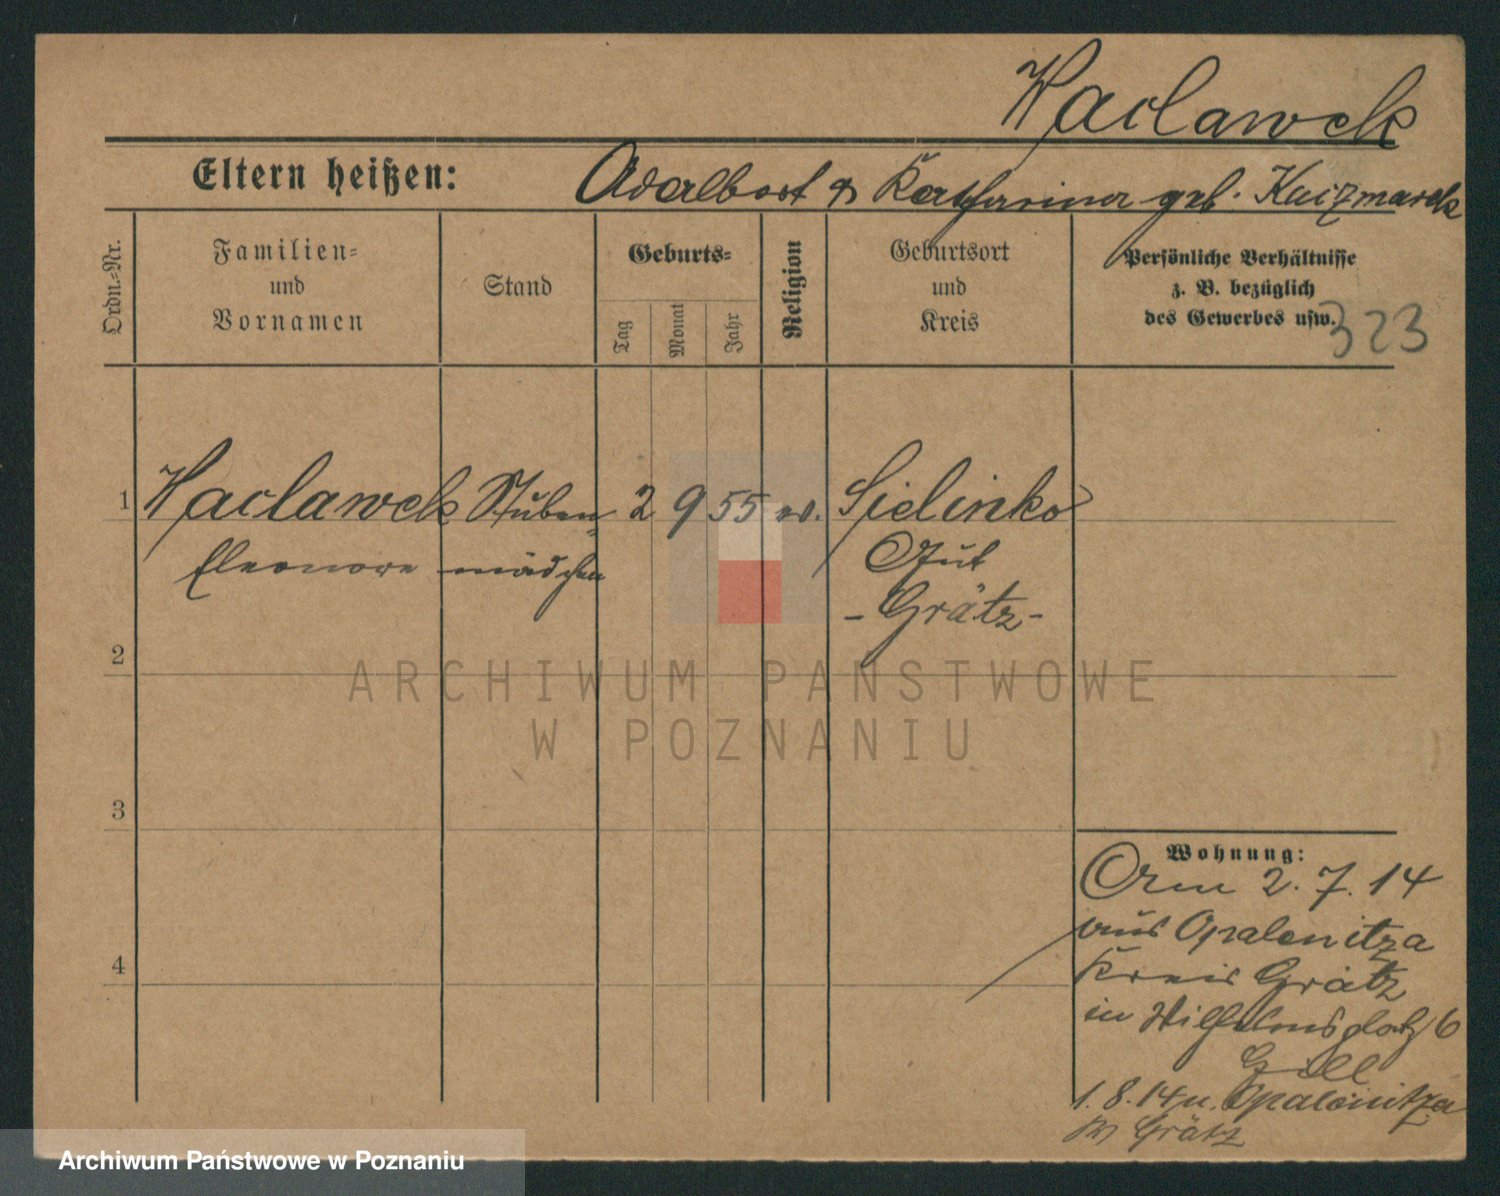 Waclawek
Eltern heißen: Adalbert & Katharina geb. Kaczmarek
Ordn.=Nr.
Familien=
und
Vornamen
Stand
Geburts=
Tag
Monat
Jahr
Religion
Geburtsort
und
Kreis
Persönliche Verhältnisse
z. B. bezüglich
des Gewerbes usw.
323
1 Waclawek Stuben= 2 9 55 Sielinko
Eleonore mädchen Gut
- Grätz -
2
3
4
Wohnung:
Am 2. 7. 14
aus Opalenitza
Kreis Grätz
in Wilhelmsplatz 6
1. 8. 14 n. Opalenitza
Grätz
ARCHIWUM PAŃSTWOWE
W POZNANIU
Archiwum Państwowe w Poznaniu